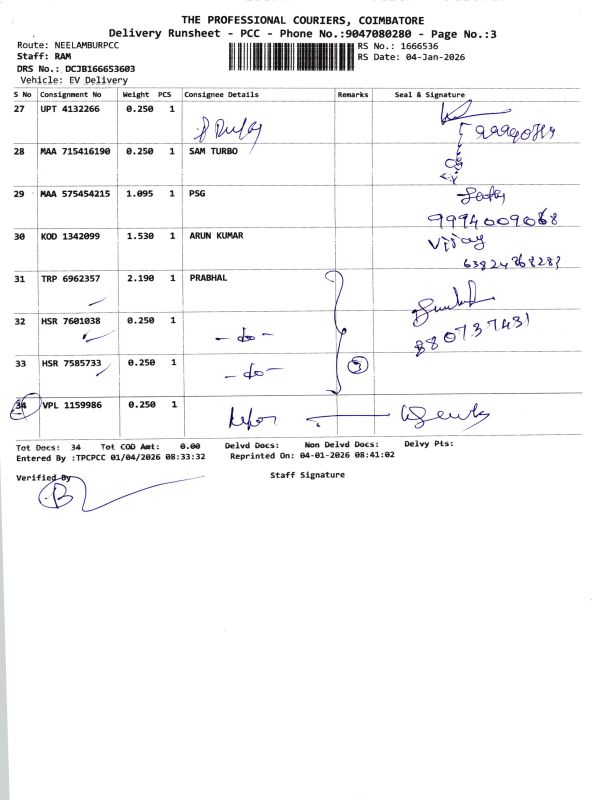 THE PROFESSIONAL COURIERS, COIMBATORE
Delivery Runsheet - PCC - Phone No.:9047080280 - Page No.:3
Route: NEELAMBURPCC RS No.: 1666536
Staff: RAM RS Date: 04-Jan-2026
DRS No.: DCJB166653603
Vehicle: EV Delivery
S No Consignment No Weight PCS Consignee Details Remarks Seal & Signature
27 UPT 4132266 0.250 1
28 MAA 715416190 0.250 1 SAM TURBO
29 MAA 575454215 1.095 1 PSG
9994009068
30 KOD 1342099 1.530 1 ARUN KUMAR Vijay
31 TRP 6962357 2.190 1 PRABHAL
32 HSR 7601038 0.250 1
- do - 880737431
33 HSR 7585733 0.250 1 3
- do -
34 VPL 1159986 0.250 1
Tot Docs: 34 Tot COD Amt: 0.00 Delvd Docs: Non Delvd Docs: Delvy Pts:
Entered By :TPCPCC 01/04/2026 08:33:32 Reprinted On: 04-01-2026 08:41:02
Verified By Staff Signature
B